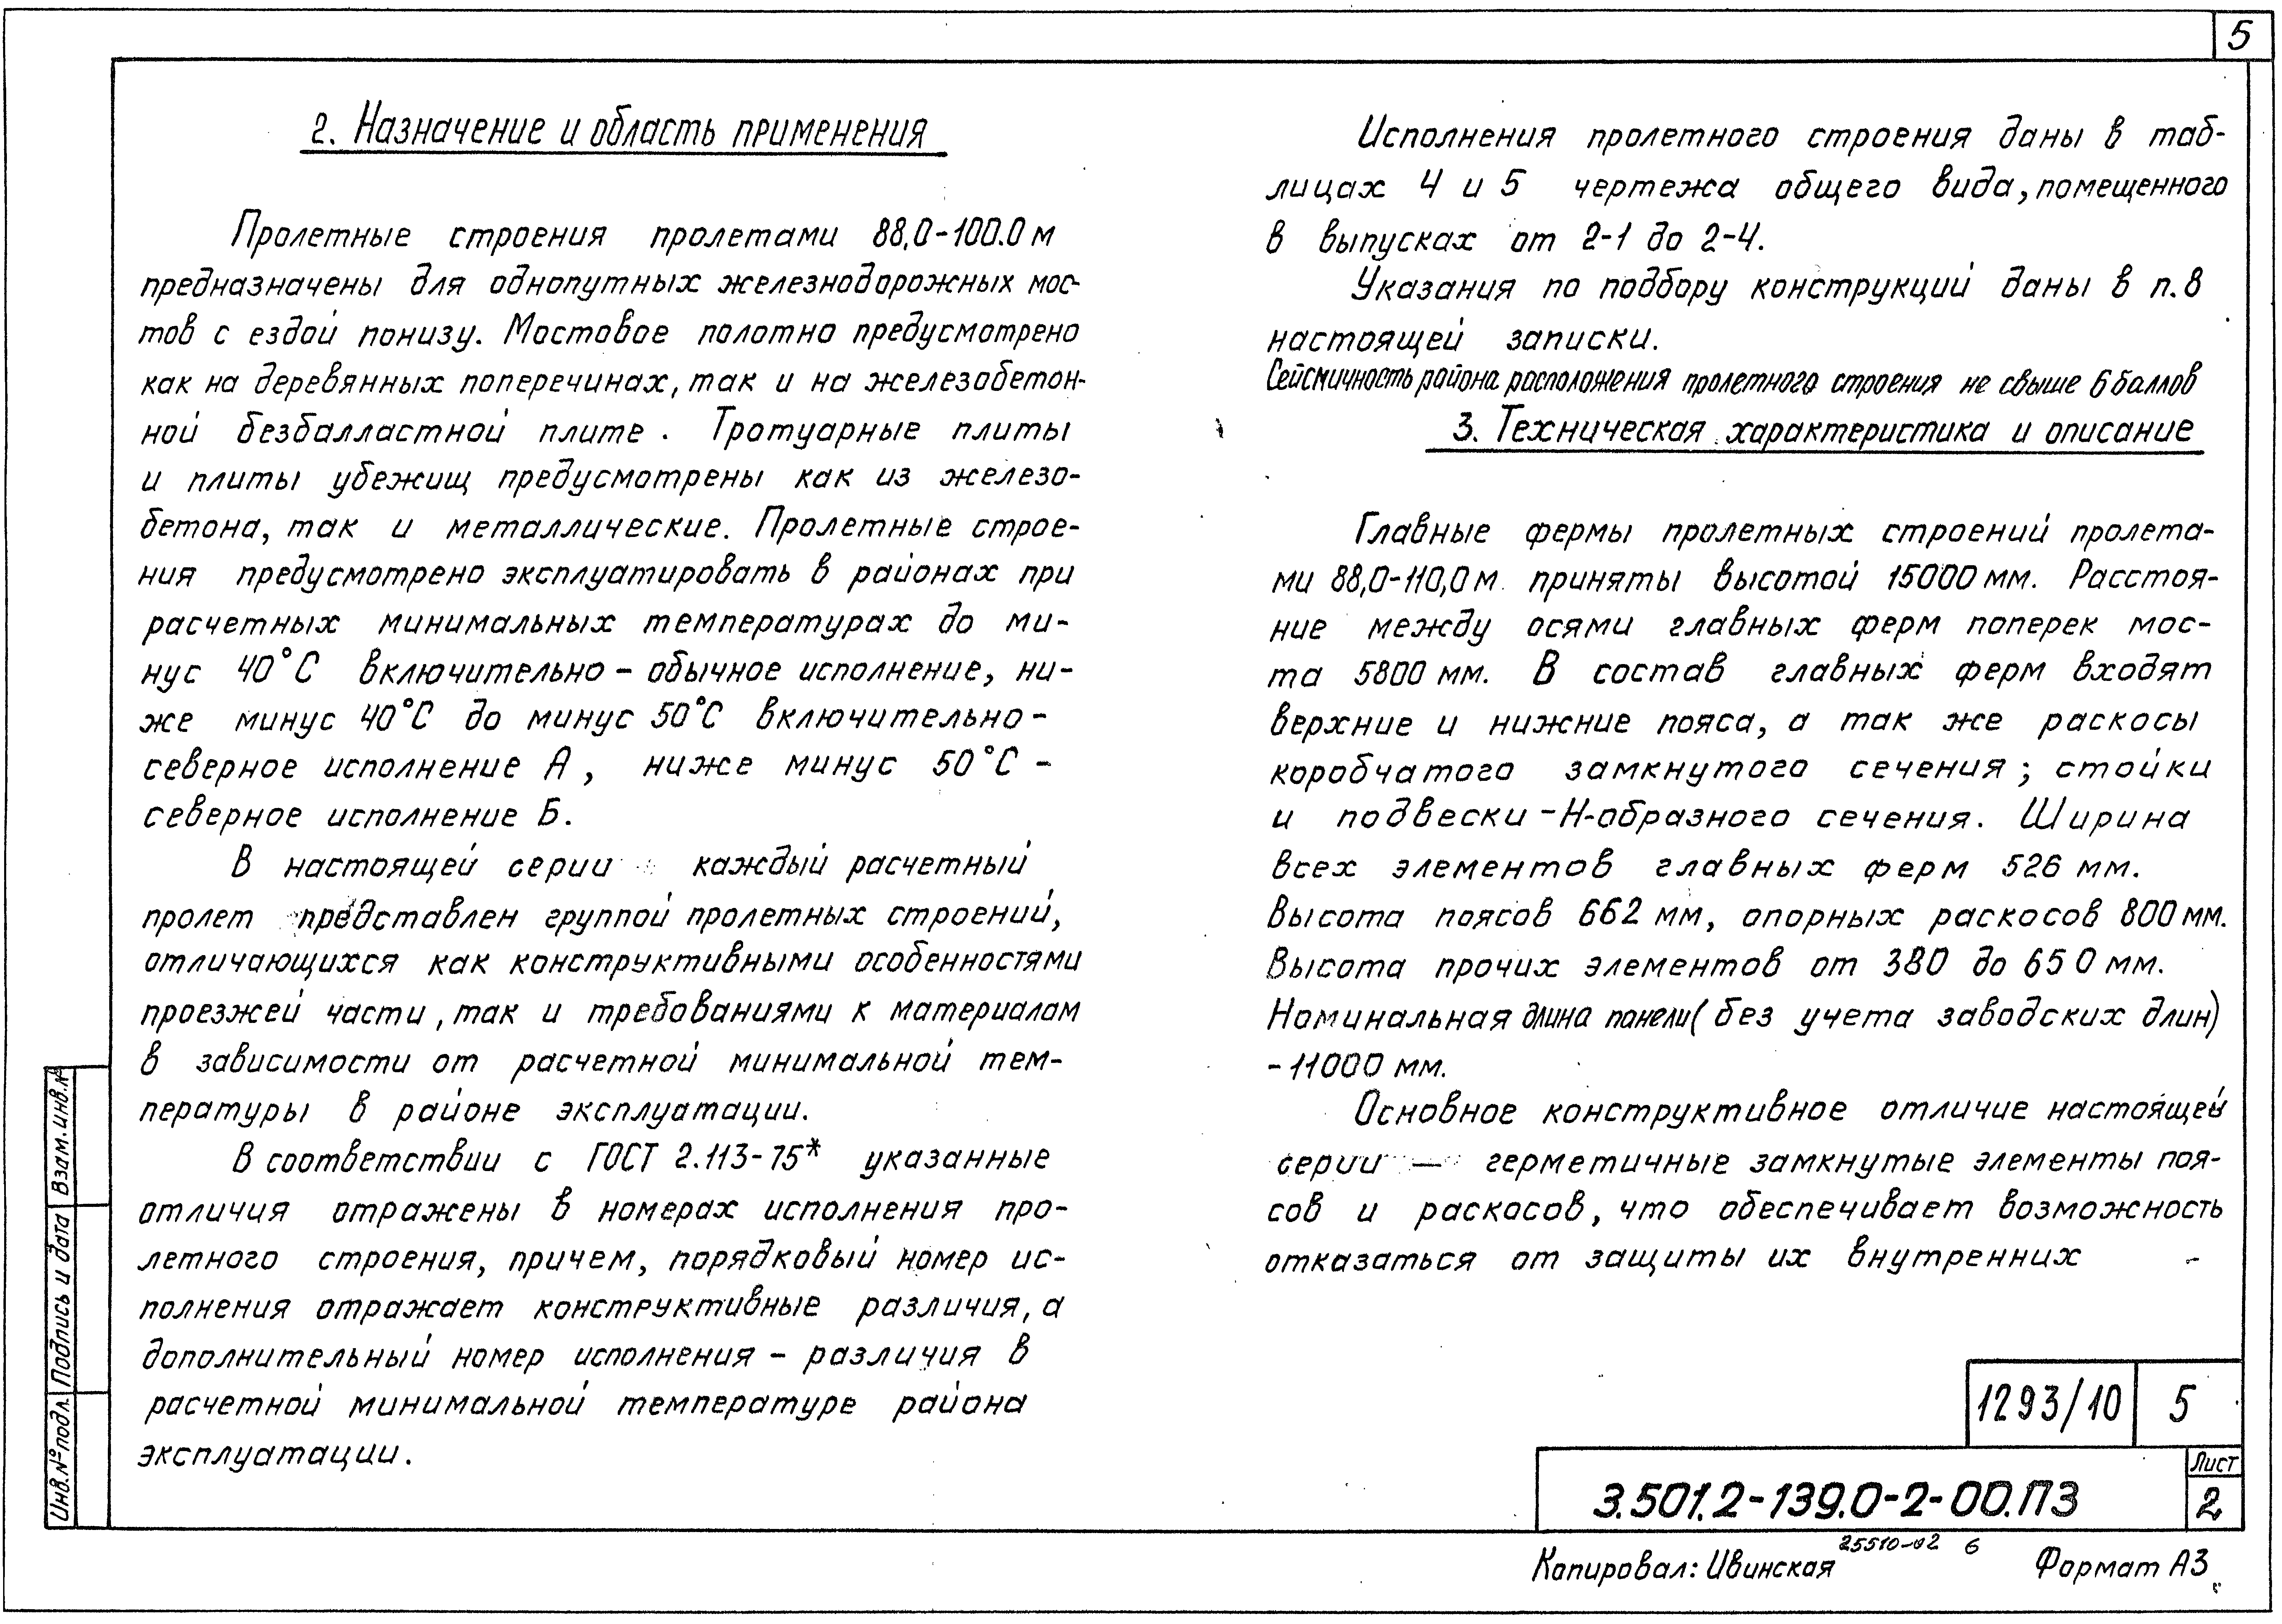 5
2. Назначение и область применения
Пролетные строения пролетами 88,0-100.0 м
предназначены для однопутных железнодорожных мос-
тов с ездой понизу. Мостовое полотно предусмотрено
как на деревянных поперечинах, так и на железобетон-
ной безбалластной плите. Тротуарные плиты
и плиты убежищ предусмотрены как из железо-
бетона, так и металлические. Пролетные строе-
ния предусмотрено эксплуатировать в районах при
расчетных минимальных температурах до ми-
нус 40°С включительно – обычное исполнение, ни-
же минус 40°С до минус 50°С включительно –
северное исполнение А, ниже минус 50°С –
северное исполнение Б.
В настоящей серии каждый расчетный
пролет представлен группой пролетных строений,
отличающихся как конструктивными особенностями
проезжей части, так и требованиями к материалам
в зависимости от расчетной минимальной тем-
пературы в районе эксплуатации.
В соответствии с ГОСТ 2.113-75* указанные
отличия отражены в номерах исполнения про-
летного строения, причем, порядковый номер ис-
полнения отражает конструктивные различия, а
дополнительный номер исполнения – различия в
расчетной минимальной температуре района
эксплуатации.
Исполнения пролетного строения даны в таб-
лицах 4 и 5 чертежа общего вида, помещенного
в выпусках от 2-1 до 2-4.
Указания по подбору конструкций даны в п.8
настоящей записки.
Сейсмичность района расположения пролетного строения не свыше 6 баллов
3. Техническая характеристика и описание
Главные фермы пролетных строений пролета-
ми 88,0-110,0 м приняты высотой 15000 мм. Расстоя-
ние между осями главных ферм поперек мос-
та 5800 мм. В состав главных ферм входят
верхние и нижние пояса, а так же раскосы
коробчатого замкнутого сечения; стойки
и подвески – Н-образного сечения. Ширина
всех элементов главных ферм 526 мм.
Высота поясов 662 мм, опорных раскосов 800 мм.
Высота прочих элементов от 380 до 650 мм.
Номинальная длина панели (без учета заводских длин)
- 11000 мм.
Основное конструктивное отличие настоящей
серии — герметичные замкнутые элементы поя-
сов и раскосов, что обеспечивает возможность
отказаться от защиты их внутренних
Взам. инв. №
Подпись и дата
Инв. № подл.
1293/10 5
3.501.2-139.0-2-00.ПЗ
Лист
2
25510-02 6
Копировал: Ивинская Формат А3